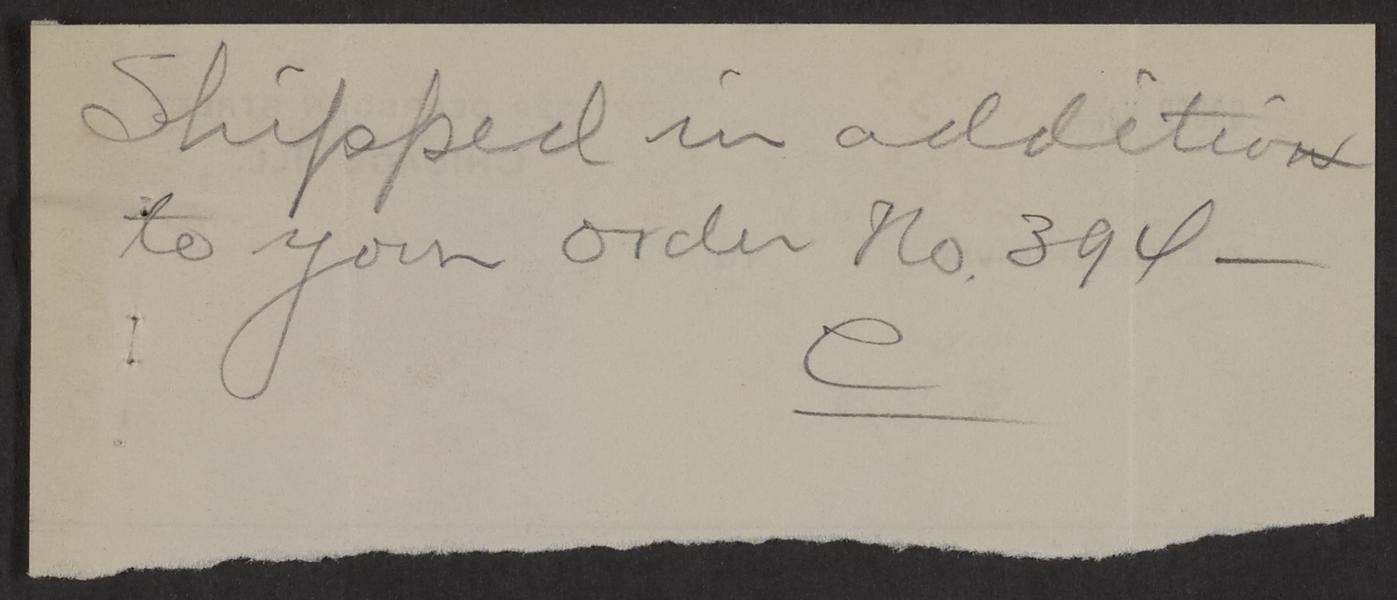 Shipped in addition
to your order No. 394 —
C